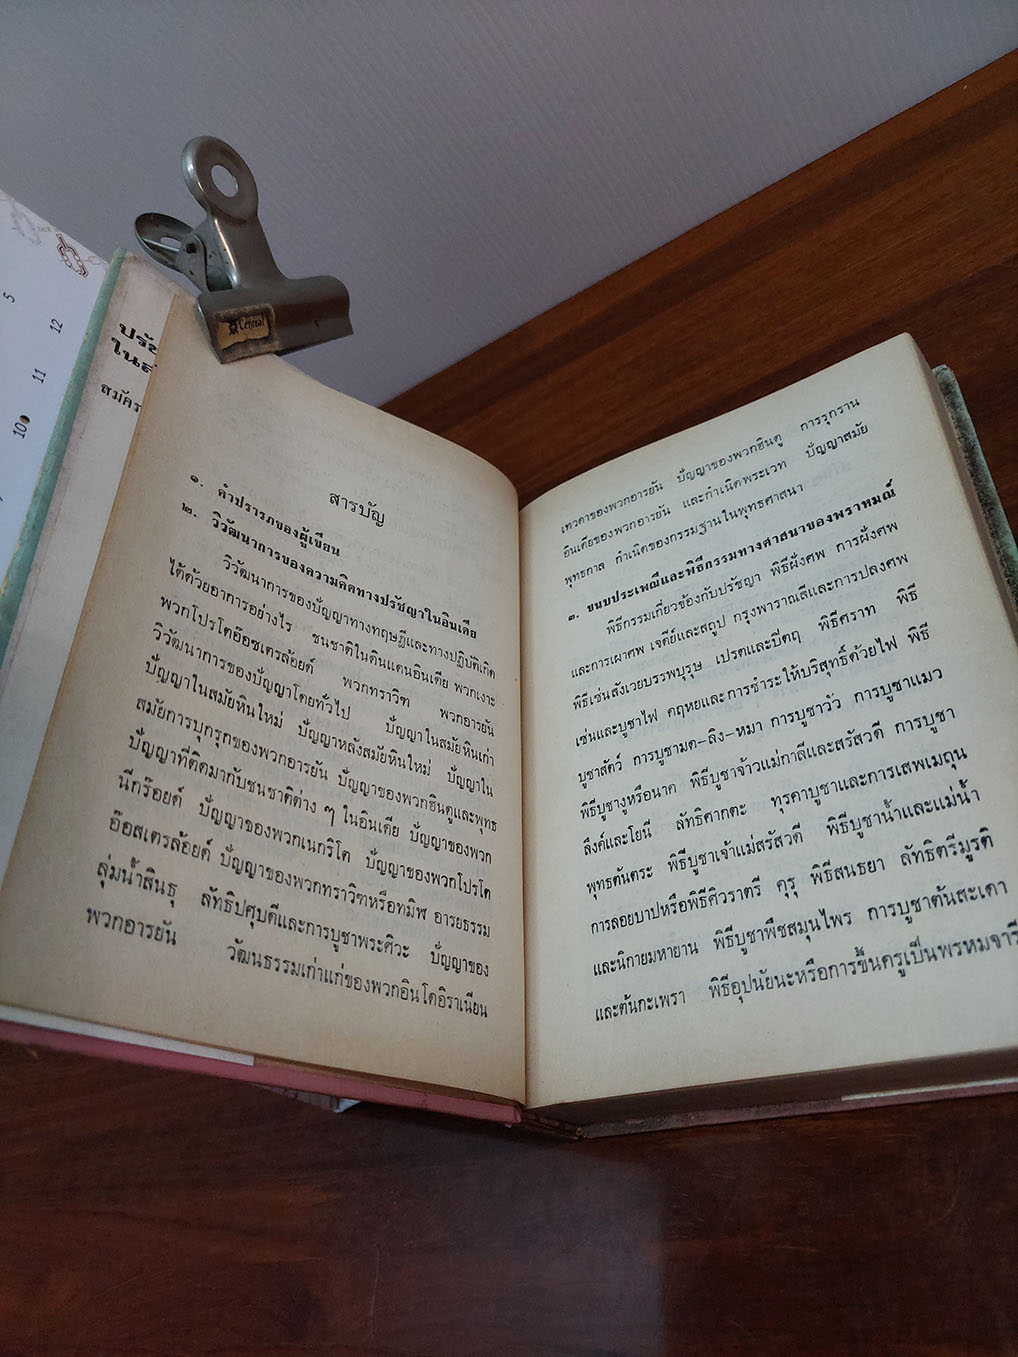 5
12
11
10
ปรัช
ในส
สมัคร
Central
สารบัญ
๑. คำปรารภของผู้เขียน
๒. วิวัฒนาการของความคิดทางปรัชญาในอินเดีย
วิวัฒนาการของปัญญาทางทฤษฎีและทางปฏิบัติเกิด
ได้ด้วยอาการอย่างไร ชนชาติในดินแดนอินเดีย พวกเงาะ
พวกโปรโตอ๊อซเตรล้อยด์ พวกทราวิฑ พวกอารยัน
วิวัฒนาการของปัญญาโดยทั่วไป ปัญญาในสมัยหินเก่า
ปัญญาในสมัยหินใหม่ ปัญญาหลังสมัยหินใหม่ ปัญญาใน
สมัยการบุกรุกของพวกอารยัน ปัญญาของพวกฮินดูและพุทธ
ปัญญาที่ติดมากับชนชาติต่าง ๆ ในอินเดีย ปัญญาของพวก
นีกร๊อยด์ ปัญญาของพวกเนกริโต ปัญญาของพวกโปรโต
อ๊อสเตรล้อยด์ ปัญญาของพวกทราวิฑหรือทมิฬ อารยธรรม
ลุ่มน้ำสินธุ ลัทธิปศุบดีและการบูชาพระศิวะ ปัญญาของ
พวกอารยัน วัฒนธรรมเก่าแก่ของพวกอินโดอิราเนียน
เทวดาของพวกอารยัน ปัญญาของพวกฮินดู การรุกราน
อินเดียของพวกอารยัน และกำเนิดพระเวท ปัญญาสมัย
พุทธกาล กำเนิดของกรรมฐานในพุทธศาสนา
๓. ขนบประเพณีและพิธีกรรมทางศาสนาของพราหมณ์
พิธีกรรมเกี่ยวข้องกับปรัชญา พิธีฝั่งศพ การฝั่งศพ
และการเผาศพ เจดีย์และสถูป กรุงพาราณสีและการปลงศพ
พิธีเซ่นสังเวยบรรพบุรุษ เปรตและปีตฤ พิธีศราท พิธี
เซ่นและบูชาไฟ คฤหยและการชำระให้บริสุทธิ์ด้วยไฟ พิธี
บูชาสัตว์ การบูชามด-ลิง-หมา การบูชาวัว การบูชาแมว
พิธีบูชางูหรือนาค พิธีบูชาจ้าวแม่กาลีและสรัสวดี การบูชา
ลึงค์และโยนี ลัทธิศากตะ ทุรคาบูชาและการเสพเมถุน
พุทธตันตระ พิธีบูชาเจ้าแม่สรัสวดี พิธีบูชาน้ำและแม่น้ำ
การลอยบาปหรือพิธีศิวราตรี คุรุ พิธีสนธยา ลัทธิตรีมูรติ
และนิกายมหายาน พิธีบูชาพืชสมุนไพร การบูชาต้นสะเดา
และต้นกะเพรา พิธีอุปนัยนะหรือการขึ้นครูเป็นพรหมจารี